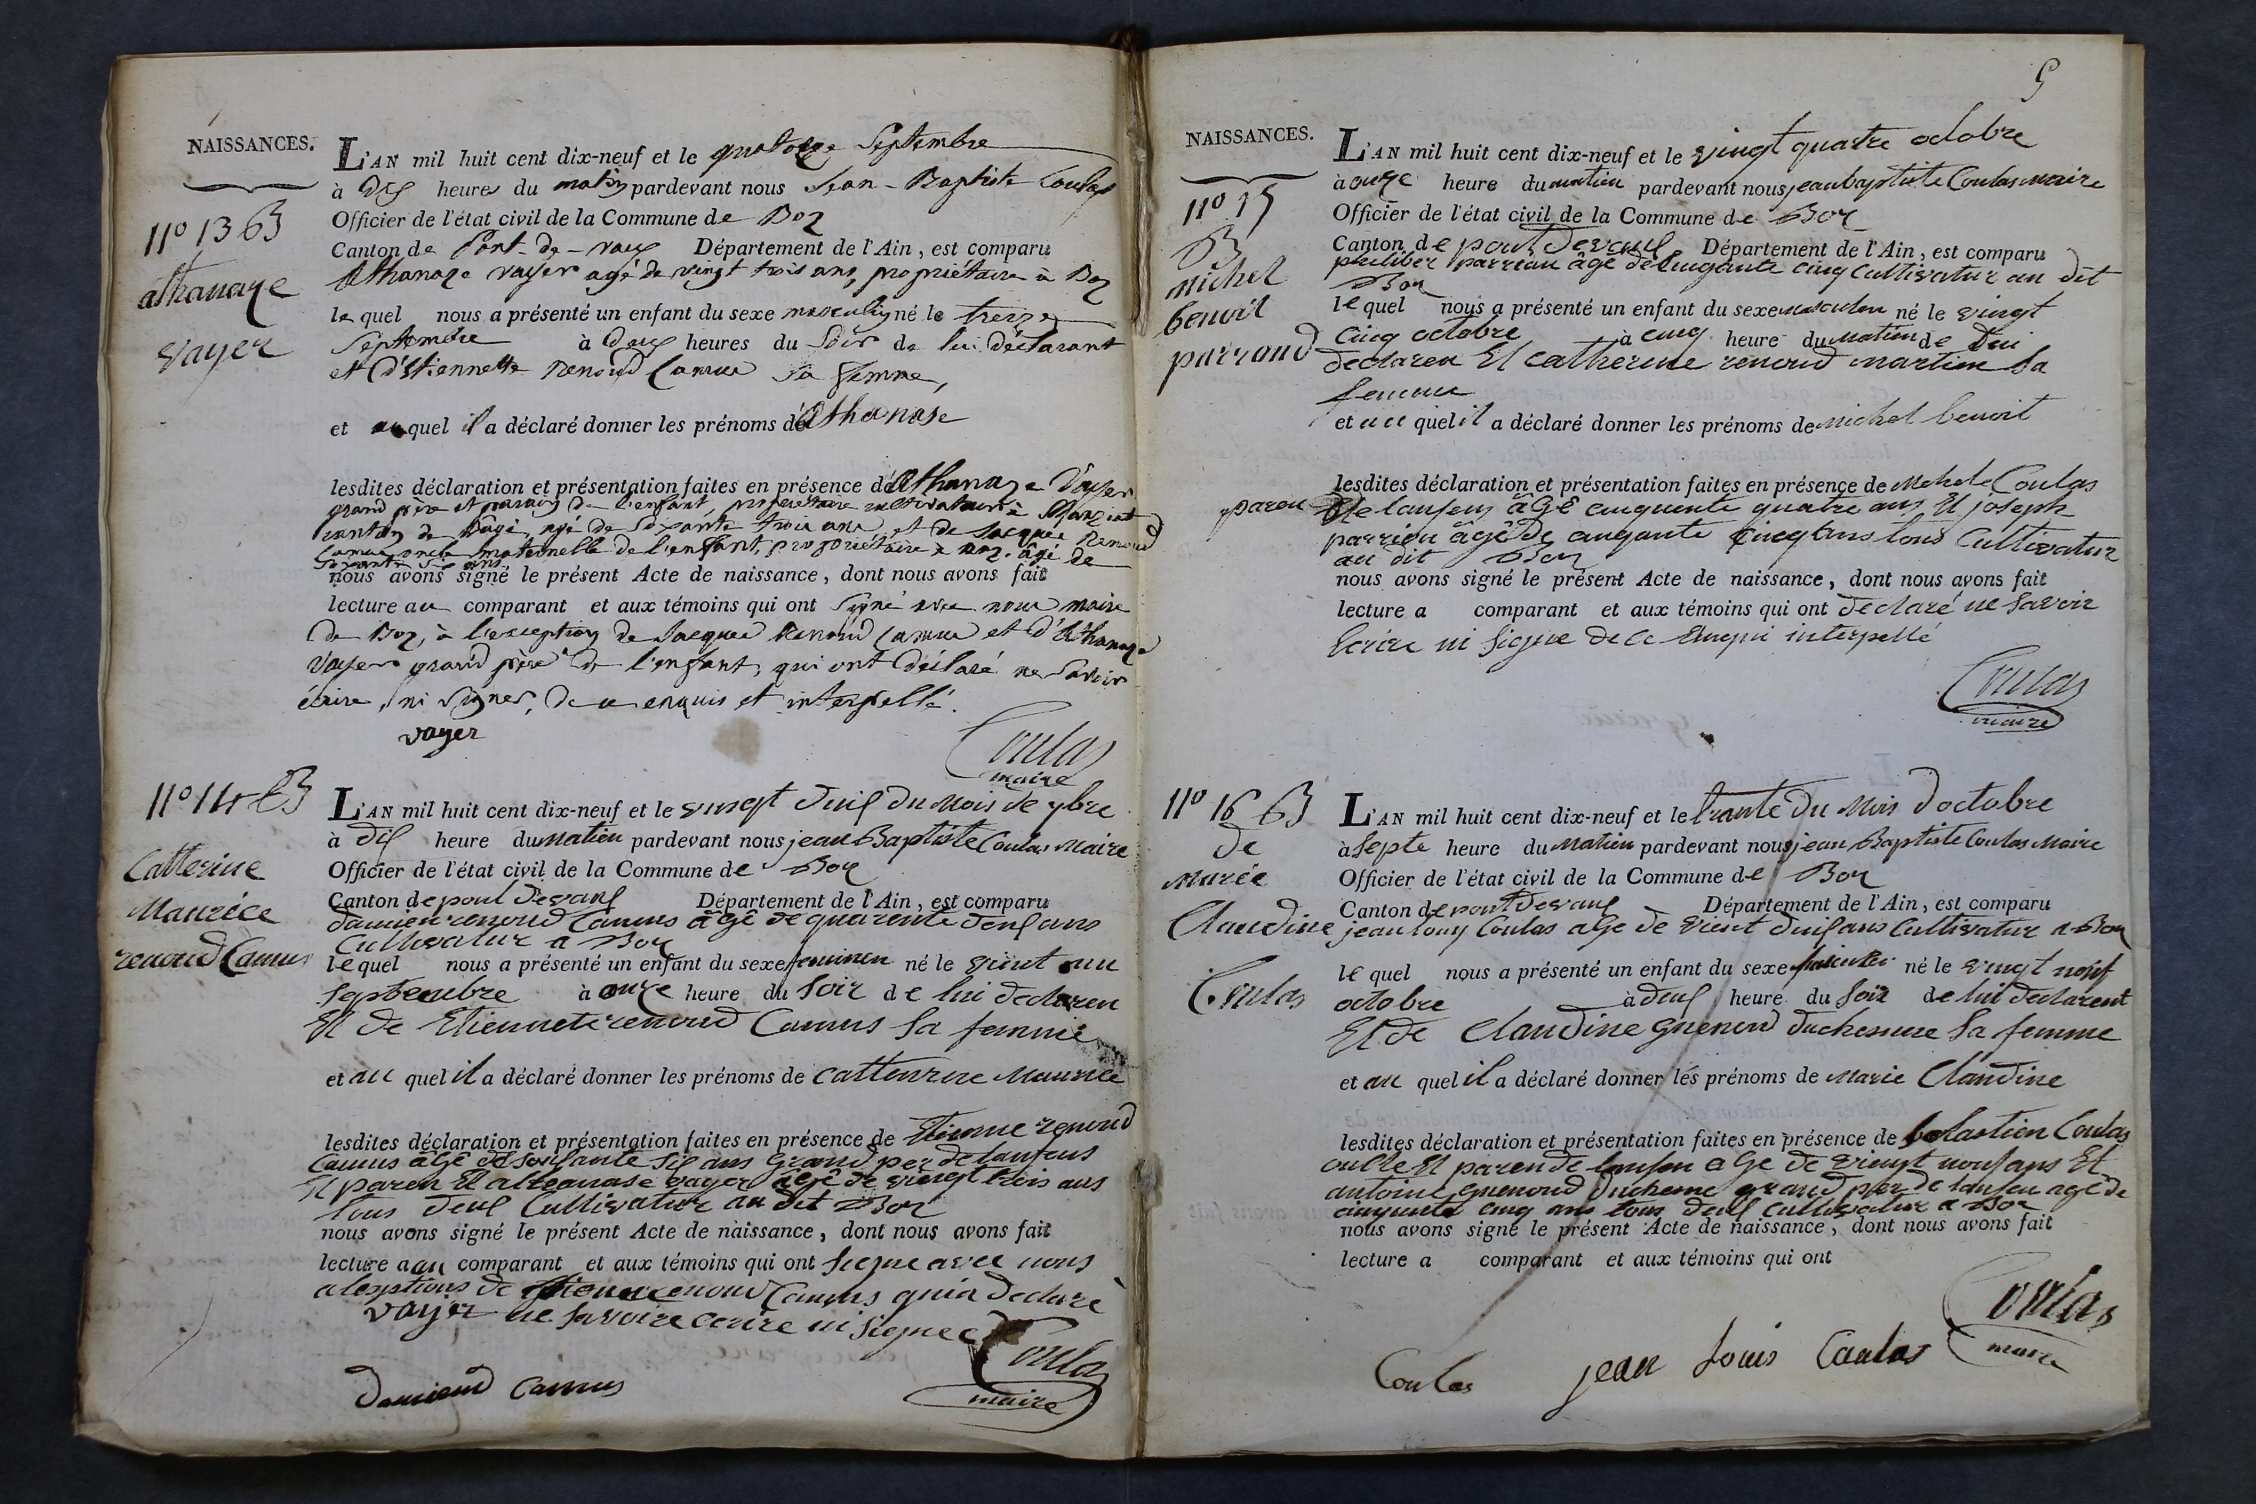 NAISSANCES.
N° 13 B
athanaze
vayer
L'AN mil huit cent dix-neuf et le quatorze Septembre
à dix heures du matin pardevant nous Jean-Baptiste Coulas
Officier de l'état civil de la Commune de Boz
Canton de Pont-de-vaux Département de l'Ain, est comparu
Athanaze vayer agé de vingt trois ans, propriétaire à Boz
lequel nous a présenté un enfant du sexe masculin né le treize
Septembre à deux heures du Soir de lui déclarant
et d'Etiennette Renoud Camus sa femme,
et auquel il a déclaré donner les prénoms de Athanase
lesdites déclaration et présentation faites en présence de Athanaze Vayer
grand père et parrain de l'enfant, propriétaire cultivateur à Manziat
canton de Bâgé, agé de soixante trois ans, et de Jacques Renoud
Camus oncle maternelle de l'enfant, propriétaire à Boz, âgé de
soixante six ans
nous avons signé le présent Acte de naissance, dont nous avons fait
lecture au comparant et aux témoins qui ont signé avec nous maire
de Boz, à l'exception de Jacques Renoud Camus et d'Athanaze
Vayer grand père de l'enfant, qui ont déclaré ne Savoir
écrire, ni signer, de ce enquis et interpellé.
vayer
Coulas
maire
N° 14 B
Catterine
Maurice
renoud Camus
L'AN mil huit cent dix-neuf et le vingt deux du Mois de 7bre
à dix heure du matien pardevant nous jean Baptiste Coulas Maire
Officier de l'état civil de la Commune de Boz
Canton de pont Devaux Département de l'Ain, est comparu
damien renoud Camus âgê de quarente deux ans
Cultivatur a Boz
lequel nous a présenté un enfant du sexe feminen né le vint un
Septembre à onze heure du Soir de lui declaren
Et de Etiennete renoud Camus sa femme
et au quel il a déclaré donner les prénoms de catterine Maurice
lesdites déclaration et présentation faites en présence de Etienne renoud
Camus âgê de soixante six ans grand per de lanfens
Et paren Et athanase vayer âgê de vingt trois ans
tous deux Cultivatur au dit Boz
nous avons signé le présent Acte de naissance, dont nous avons fait
lecture a au comparant et aux témoins qui ont Siegne avec nous
alexptions de Etienne renoud Camus qui a declaré
vayer ne savoire ecrire ni siegne
Coulas
maire
Damiend Camus
5
NAISSANCES.
N° 15
B
michel
benoit
parraud
L'AN mil huit cent dix-neuf et le vingt quatre octobre
à onze heure du matien pardevant nous jean baptiste Coulas maire
Officier de l'état civil de la Commune de Boz
Canton de pont Devaux Département de l'Ain, est comparu
philiber parriau âgé de cinqante cinq Cultivatur au dit
Boz
lequel nous a présenté un enfant du sexe masculen né le vingt
Cinq octobre à cinq heure du matien de Lui
declaren Et catherine renoud martien Sa
femme
et au quel il a déclaré donner les prénoms de michel benoit
lesdites déclaration et présentation faites en présence de Michel Coulas
paren de lanfens âGE cinquente quatre ans Et joseph
parriau âgê de cinqante cinq ans tous Cultivatur
au dit Boz
nous avons signé le présent Acte de naissance, dont nous avons fait
lecture a comparant et aux témoins qui ont declaré ne Savoir
Ecrire ni Siegne de ce enqui interpellé
Coulas
maire
N° 16 B
de
marie
Claudine
Coulas
L'AN mil huit cent dix-neuf et le trante du Mois doctobre
à septe heure du matien pardevant nous jean Baptiste Coulas Maire
Officier de l'état civil de la Commune de Boz
Canton de pont Devaux Département de l'Ain, est comparu
jean louy Coulas aGe de vient deux ans Cultivatur a Boz
lequel nous a présenté un enfant du sexe né le vingt neuf
octobre à deux heure du soir de lui declarent
Et de Claudine guenoud duchesne Sa femme
et au quel il a déclaré donner les prénoms de Marie Claudine
lesdites déclaration et présentation faites en présence de Sebastien Coulas
oncle Et paren de lanfen aGe de vingt neuf ans Et
antoine guenoud duchesne grand per de lanfen agé de
cinquente cinq ans tous deux cultivatur a Boz
nous avons signé le présent Acte de naissance, dont nous avons fait
lecture a comparant et aux témoins qui ont
Coulas
maire
Coulas jean Louis Coulas